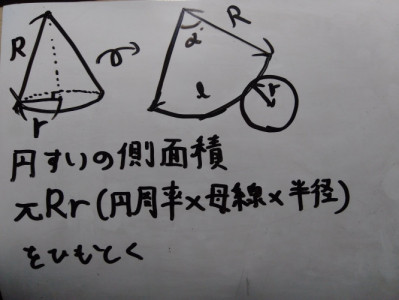 R
r
α
R
l
r
円すいの側面積
πRr(円周率×母線×半径)
をひもとく